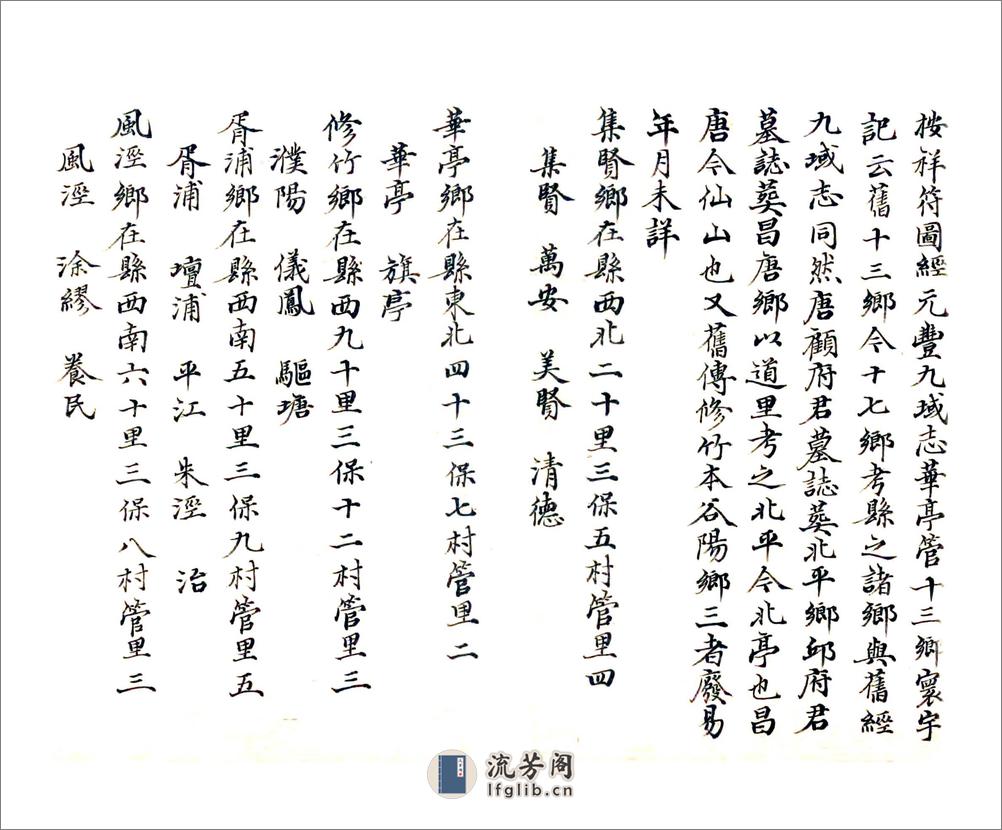 按祥符圖經元豐九域志華亭管十三鄉寰宇
記云舊十三鄉今十七鄉考縣之諸鄉與舊經
九域志同然唐顧府君墓誌葬北平鄉邱府君
墓誌葬昌唐鄉以道里考之北平今北亭也昌
唐今仙山也又舊傳修竹本谷陽鄉三者廢易
年月未詳
集賢鄉在縣西北二十里三保五村管里四
集賢 萬安 美賢 清德
華亭鄉在縣東北四十三保七村管里二
華亭 旗亭
修竹鄉在縣西九十里三保十二村管里三
濮陽 儀鳳 驅塘
胥浦鄉在縣西南五十里三保九村管里五
胥浦 壇浦 平江 朱涇 治
風涇鄉在縣西南六十里三保八村管里三
風涇 涂繆 養民
流芳阁
lfglib.cn